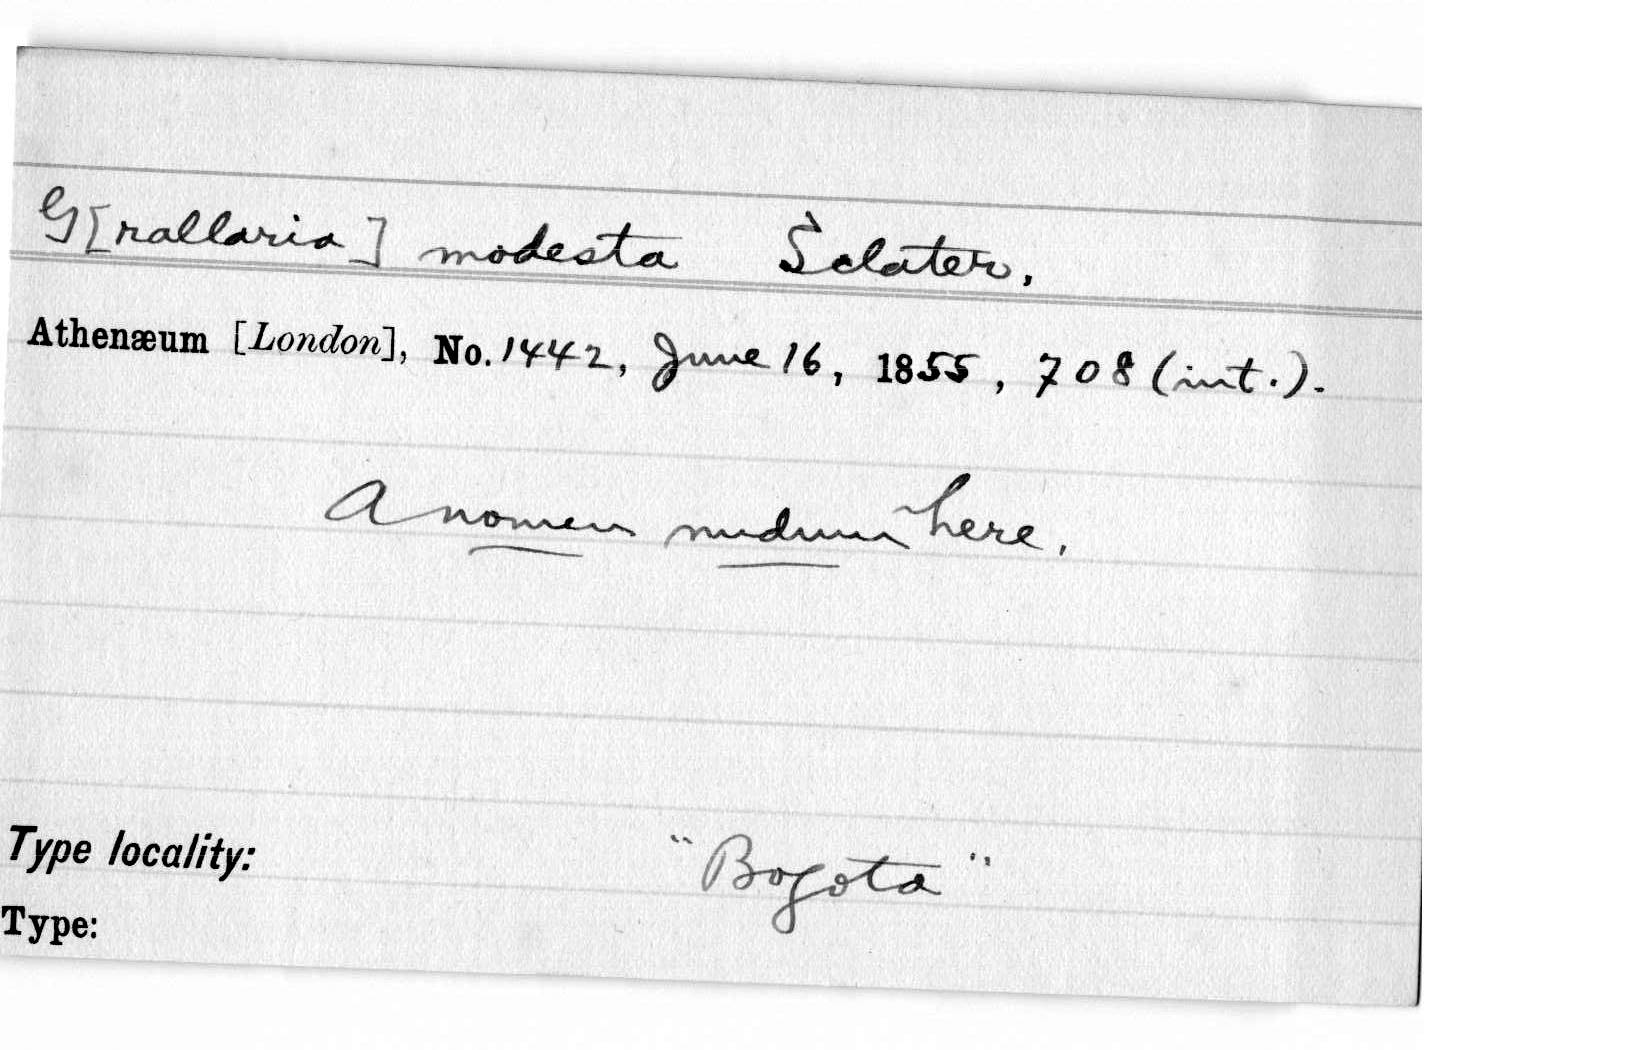 G[rallaria] modesta Sclater.
Athenæum [London], No. 1442, June 16, 1855, 708 (int.).
A nomen nudum here.
Type locality: "Bogota"
Type: